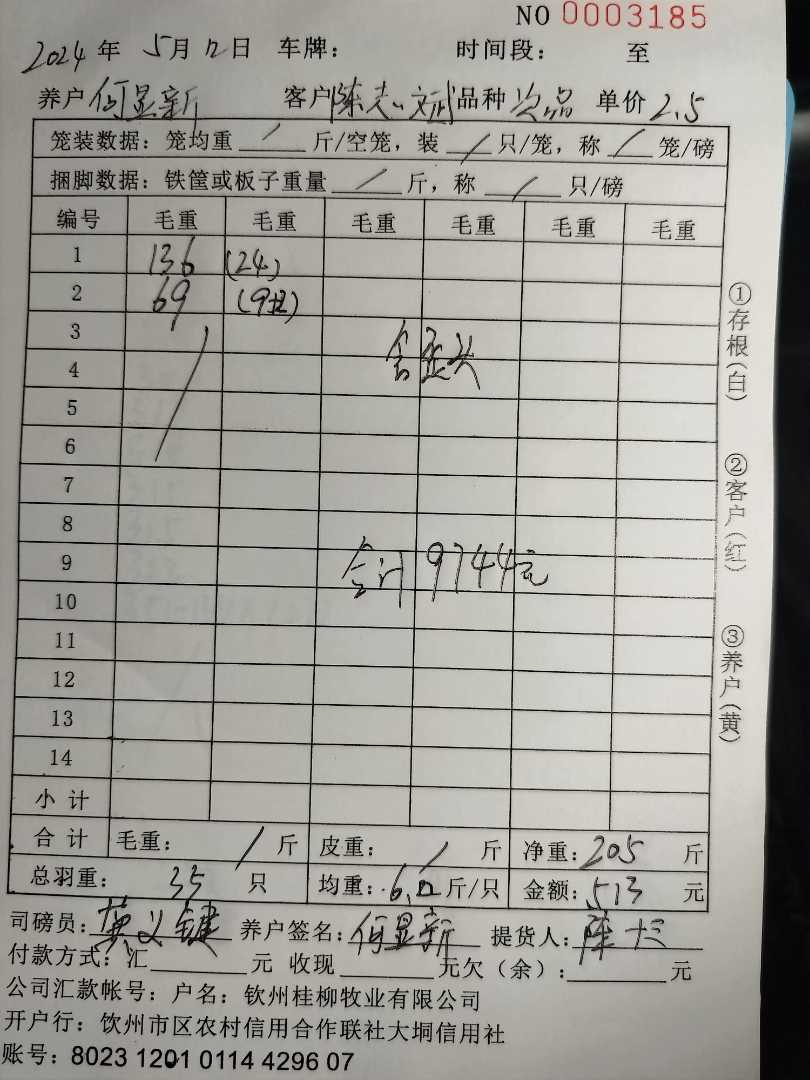 NO 0003185
2024年 5月12日 车牌: 时间段: 至
养户 何显新 客户 陈 文武 品种 次品 单价 2.5
笼装数据: 笼均重 / 斤/空笼, 装 / 只/笼, 称 / 笼/磅
捆脚数据: 铁筐或板子重量 / 斤, 称 / 只/磅
编号 毛重 毛重 毛重 毛重 毛重 毛重
1 136 (24)
2 69
3
4 含歪头
5
6
7
8
9 合计 9744元
10
11
12
13
14
小计
合计 毛重: / 斤 皮重: / 斤 净重: 205 斤
总羽重: 35 只 均重: 斤/只 金额: 513 元
司磅员: 养户签名: 何显新 提货人: 陈
付款方式: 汇 元 收现 元欠(余): 元
公司汇款帐号: 户名: 钦州桂柳牧业有限公司
开户行: 钦州市区农村信用合作联社大垌信用社
账号: 8023 1201 0114 4296 07
①存根(白)
②客户(红)
③养户(黄)